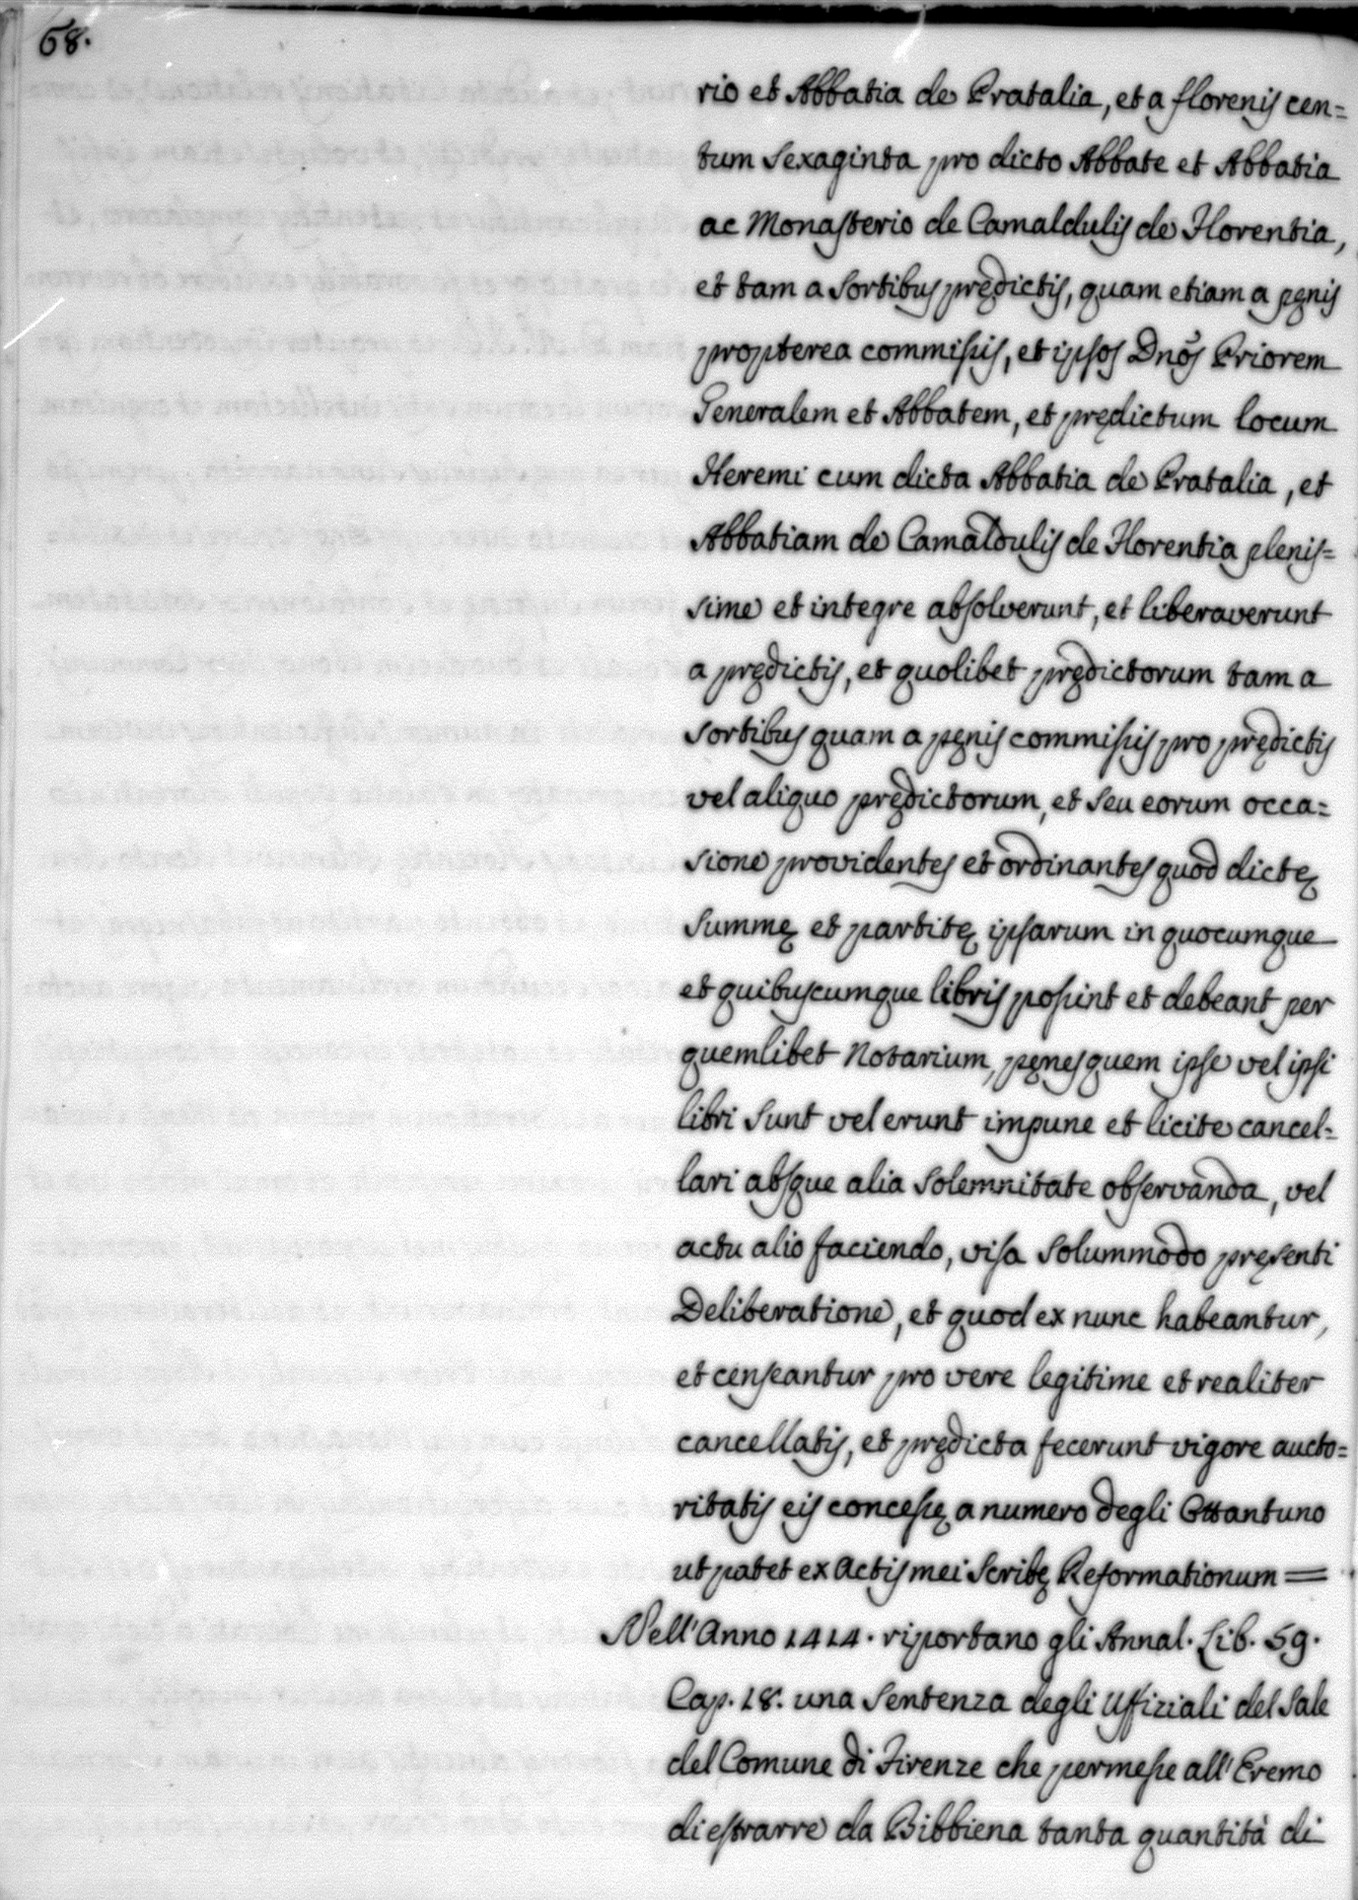 68.
rio et Abbatia de Pratalia, et a florenis cen=
tum Sexaginta pro dicto Abbate et Abbatia
ac Monasterio de Camaldulis de Florentia,
et tam a Sortibus prędictis, quam etiam a pęnis
propterea commissis, et ipsos Dnõs Priorem
Generalem et Abbatem, et prędictum locum
Heremi cum dicta Abbatia de Pratalia, et
Abbatiam de Camaldulis de Florentia plenis=
sime et integre absolverunt, et liberaverunt
a prędictis, et quolibet prędictorum tam a
sortibus quam a pęnis commissis pro prędictis
vel aliquo prędictorum, et seu eorum occa=
sione providentes et ordinantes quod dictę
Summę et partitę ipsarum in quocumque
et quibuscumque libris possint et debeant per
quemlibet Notarium, pęnes quem ipse vel ipsi
libri sunt vel erunt impune et licite cancel=
lari absque alia Solemnitate observanda, vel
actu alio faciendo, visa Solummodo pręsenti
Deliberatione, et quod ex nunc habeantur,
et censeantur pro vere legitime et realiter
cancellatis, et prędicta fecerunt vigore aucto=
ritatis eis concessę a numero degli Ottantuno
ut patet ex Actis mei Scribę Reformationum =
Nell'Anno 1414. riportano gli Annal. Lib. 59.
Cap. 18. una Sentenza degli Uffiziali del Sale
del Comune di Firenze che permesse all'Eremo
di estrarre da Bibbiena tanta quantità di